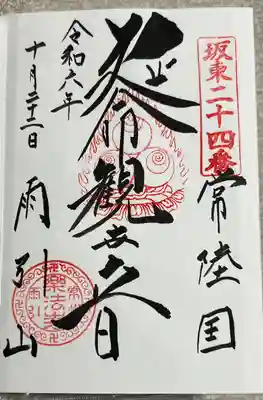 坂東二十四番
常陸国
延命観世音
令和六年
十月二十二日
雨引山
樂法寺